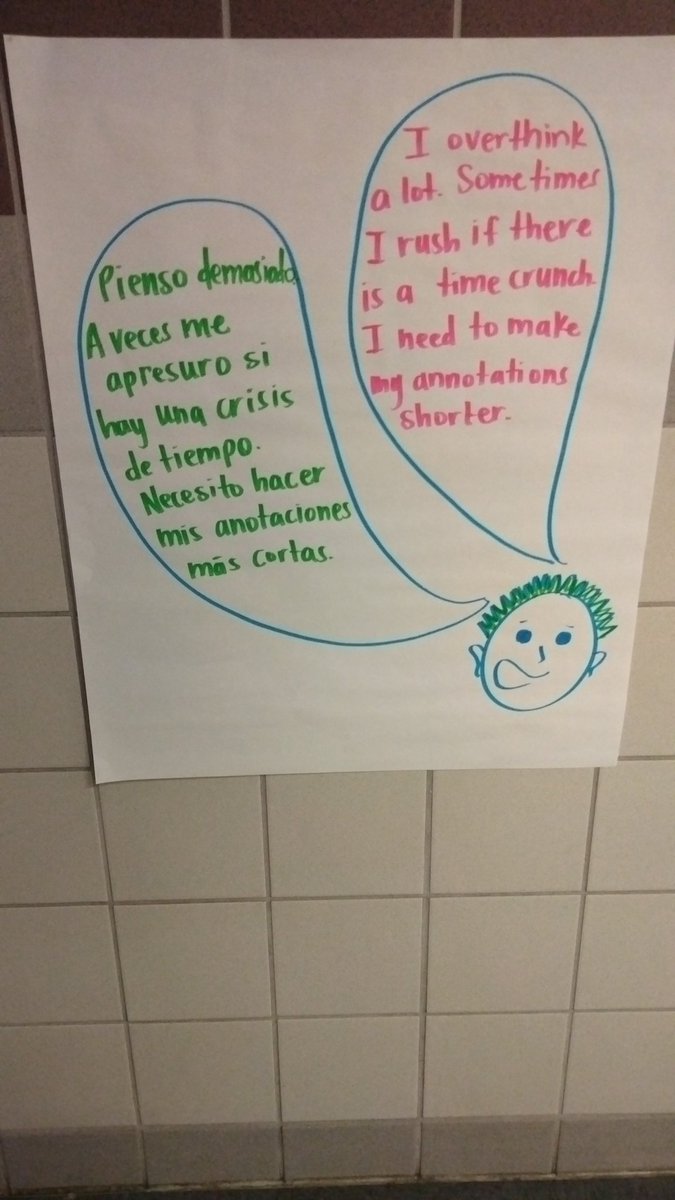 Pienso demasiado.
A veces me
apresuro si
hay una crisis
de tiempo.
Necesito hacer
mis anotaciones
más cortas.
I overthink
a lot. Sometimes
I rush if there
is a time crunch.
I need to make
my annotations
shorter.